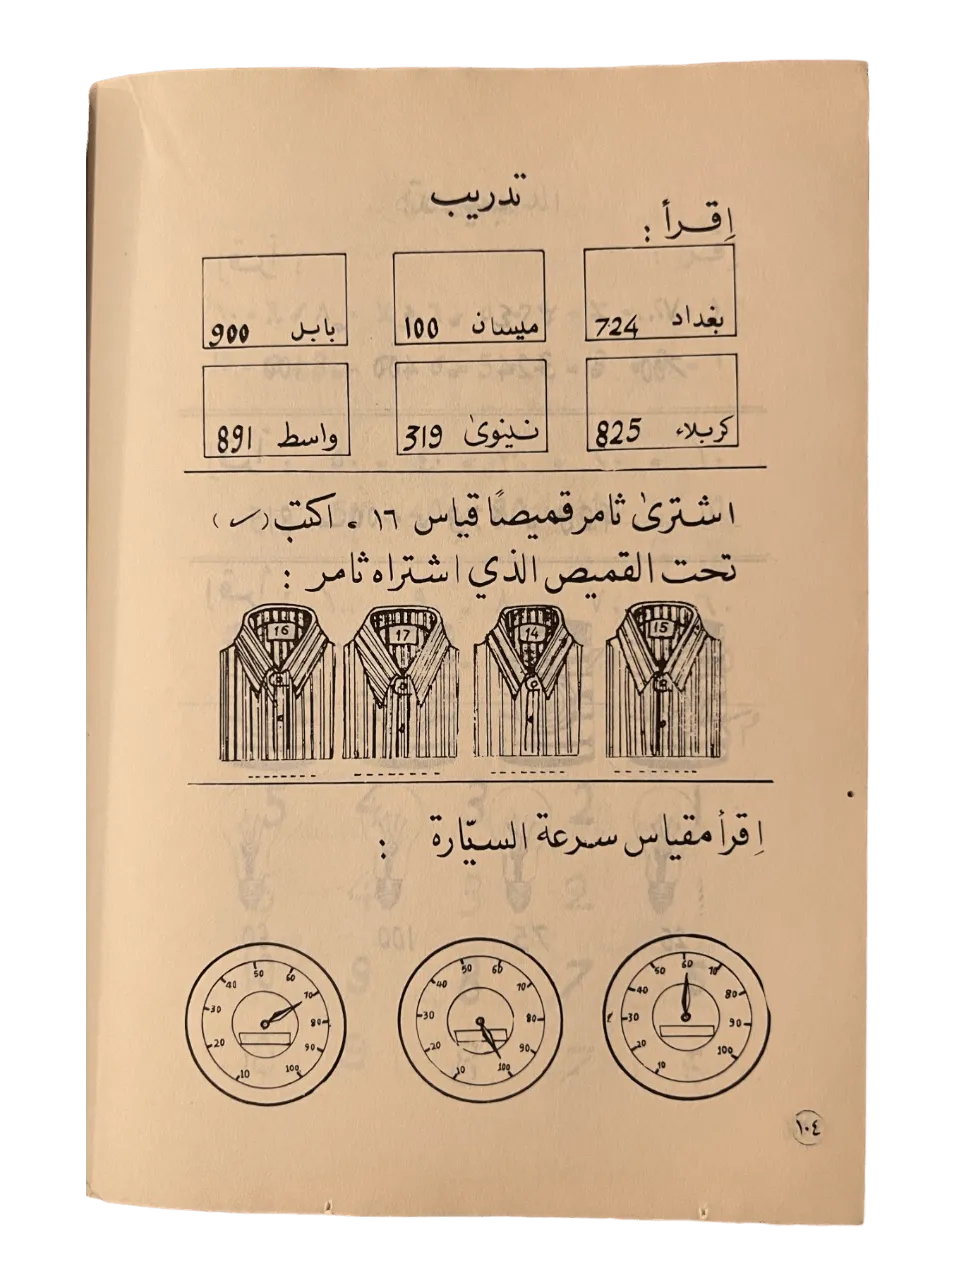 تدريب
إقرأ :
بغداد 724
ميسان 100
بابل 900
كربلاء 825
نينوى 319
واسط 891
اشترىٰ ثامر قميصًا قياس ١٦ . اكتب (✓)
تحت القميص الذي اشتراه ثامر :
16 17 14 15
إقرأ مقياس سرعة السيّارة :
10 20 30 40 50 60 70 80 90 100
10 20 30 40 50 60 70 80 90 100
10 20 30 40 50 60 70 80 90 100
١٠٤